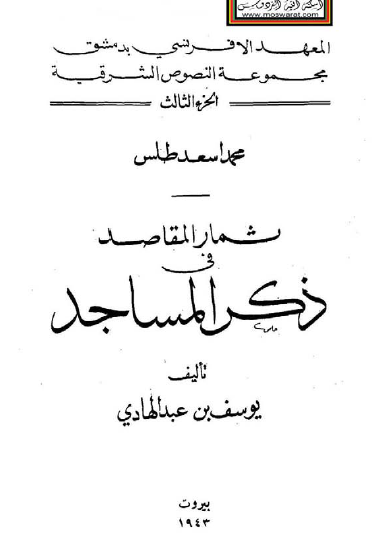 www.moswarat.com
المعهد الافرنسي بدمشق
مجموعة النصوص الشرقية
الجزء الثالث
محمد اسعد طلس
ثمار المقاصد
في
ذكر المساجد
تأليف
يوسف بن عبد الهادي
بيروت
١٩٤٣